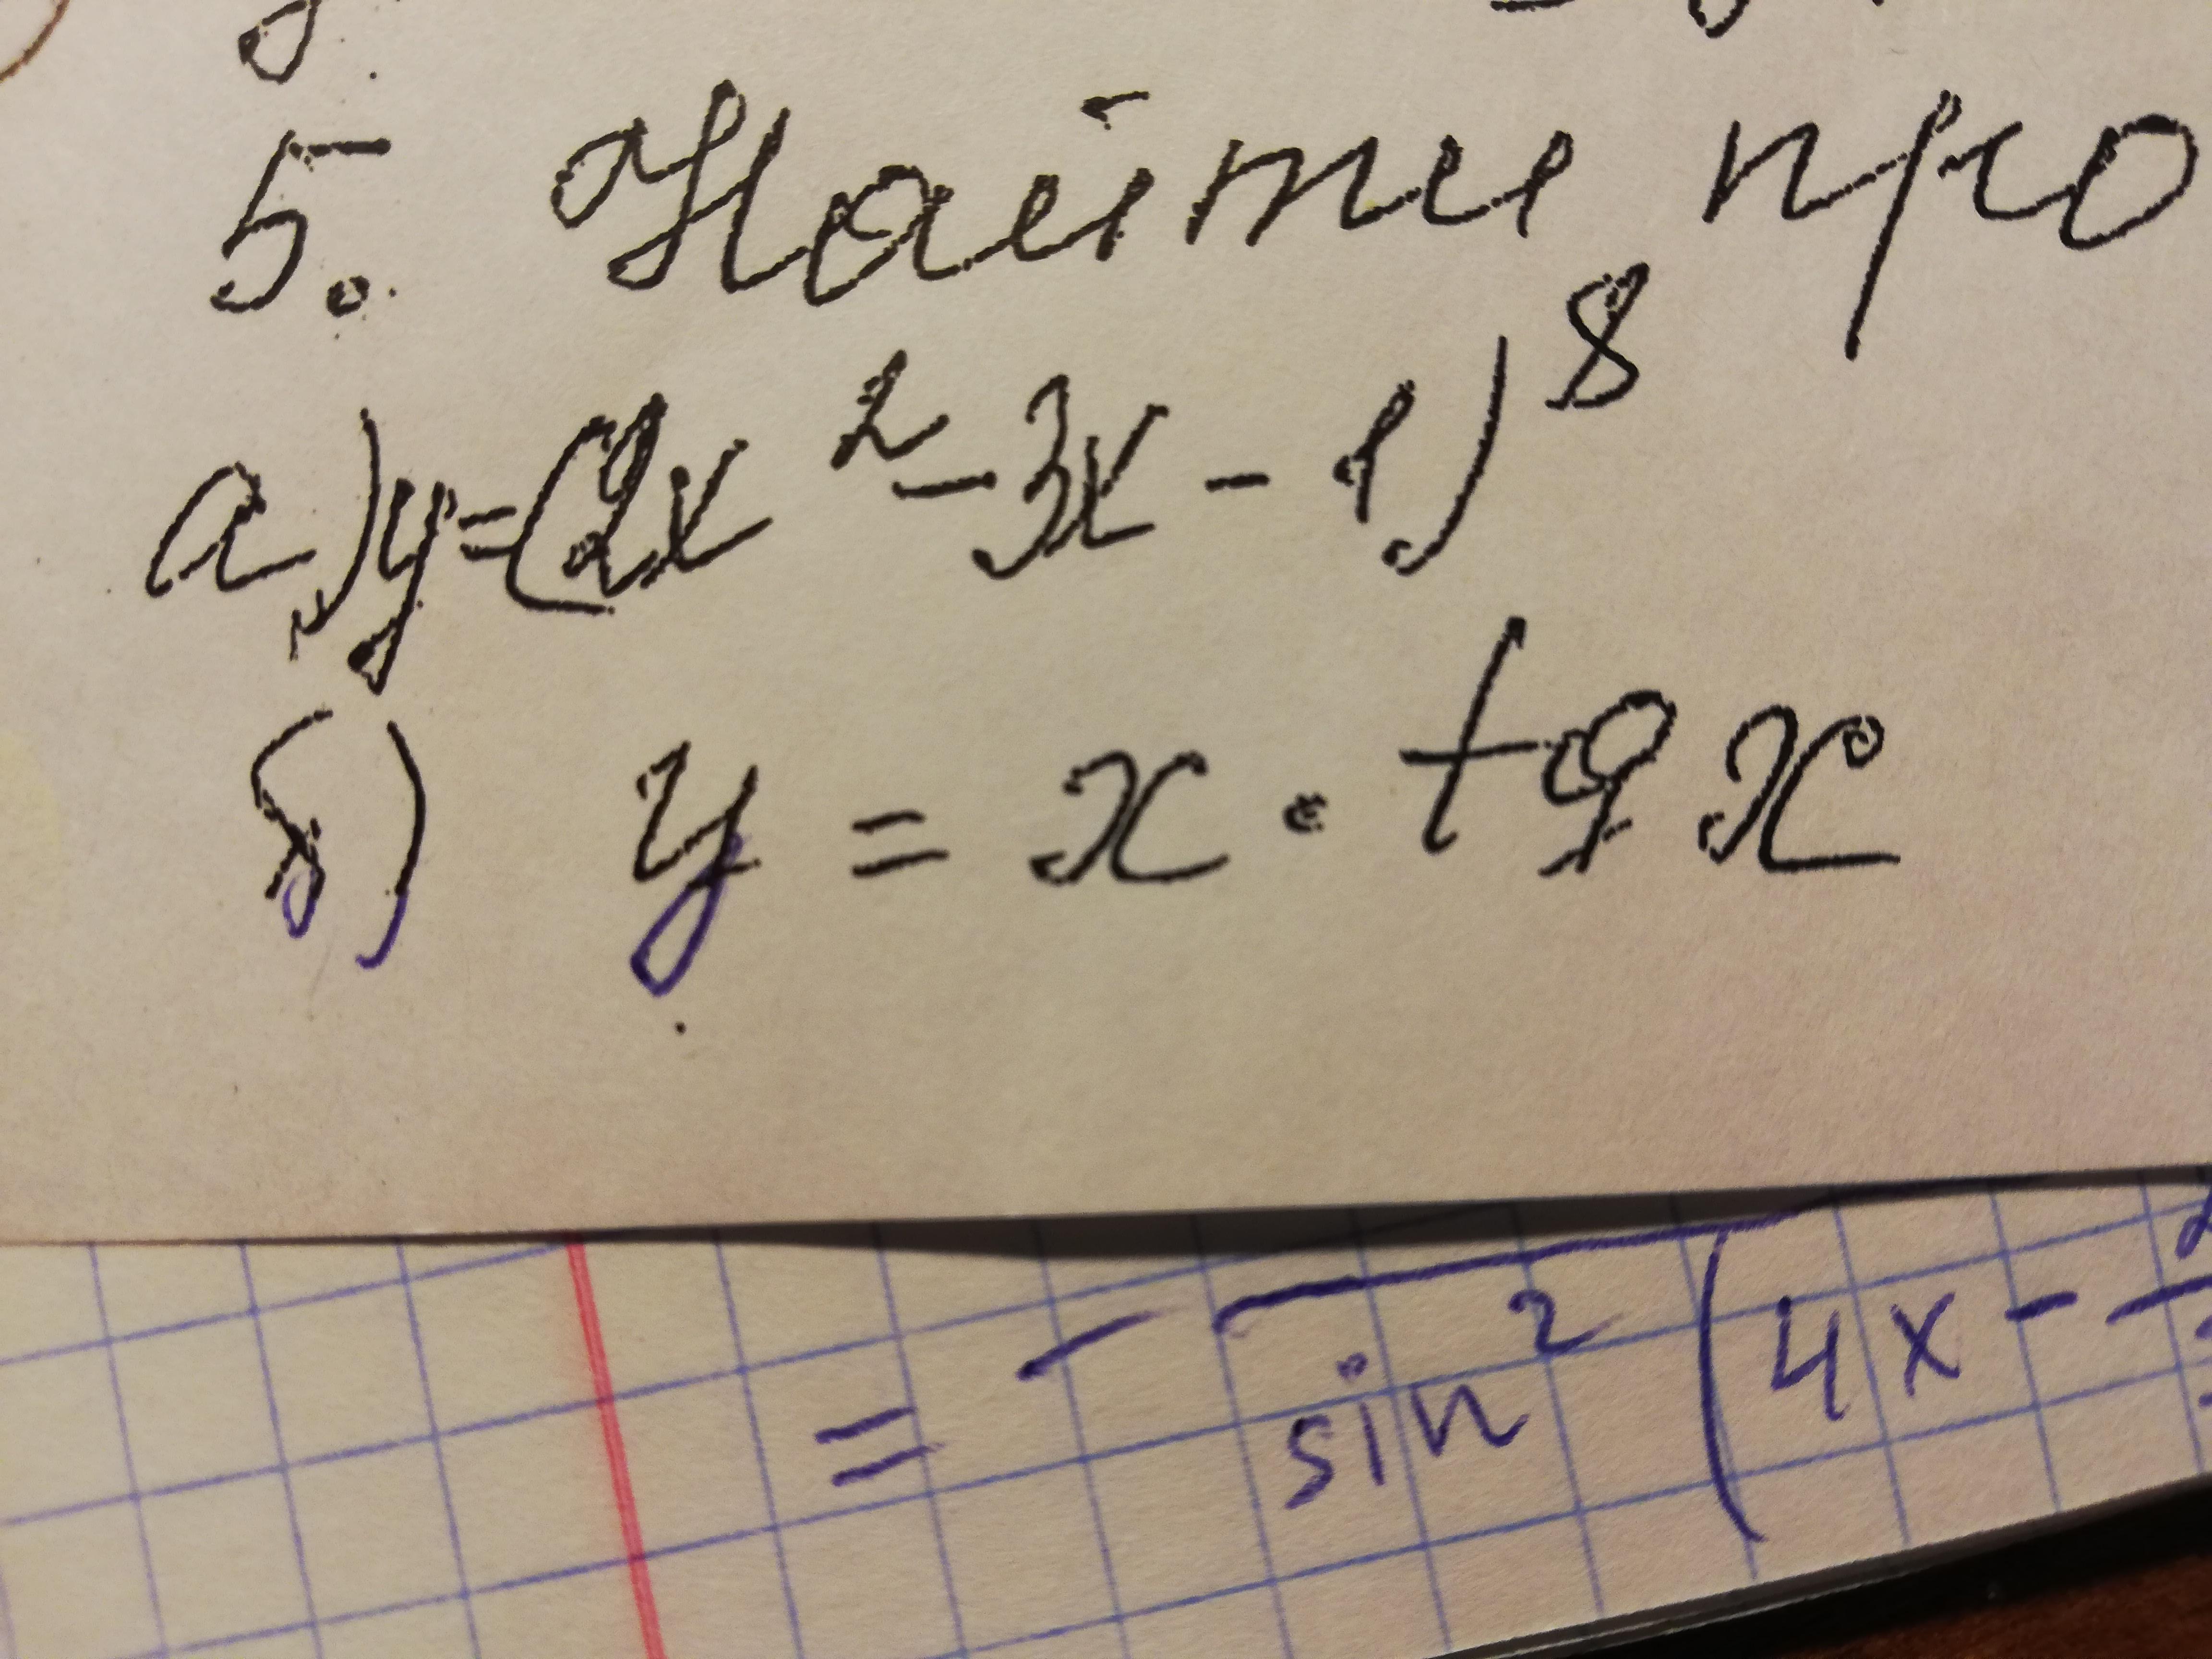 5. Найти про
а) y=(2x²-3x-1)⁸
б) y = x · tg x
= - sin² (4x -